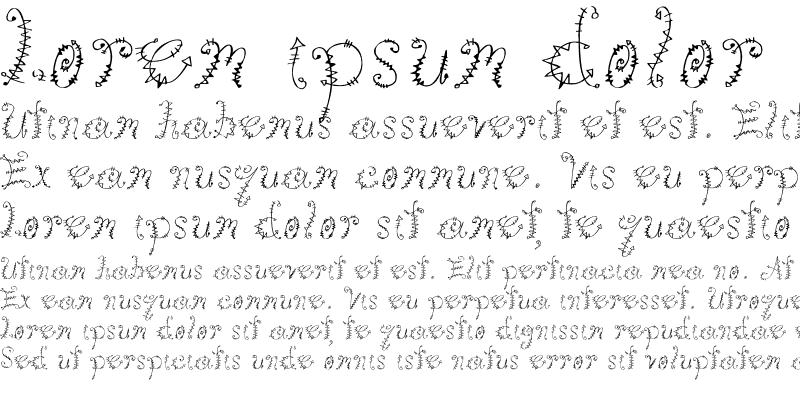 Lorem ipsum dolor
Utinam habemus assueverit et est. Elit
Ex eam nusquam commune. Vis eu perp
Lorem ipsum dolor sit amet, te quaestio
Utinam habemus assueverit et est. Elit pertinacia mea no. At
Ex eam nusquam commune. Vis eu perpetua interesset. Utroque
Lorem ipsum dolor sit amet, te quaestio dignissim repudiandae
Sed ut perspiciatis unde omnis iste natus error sit voluptatem a